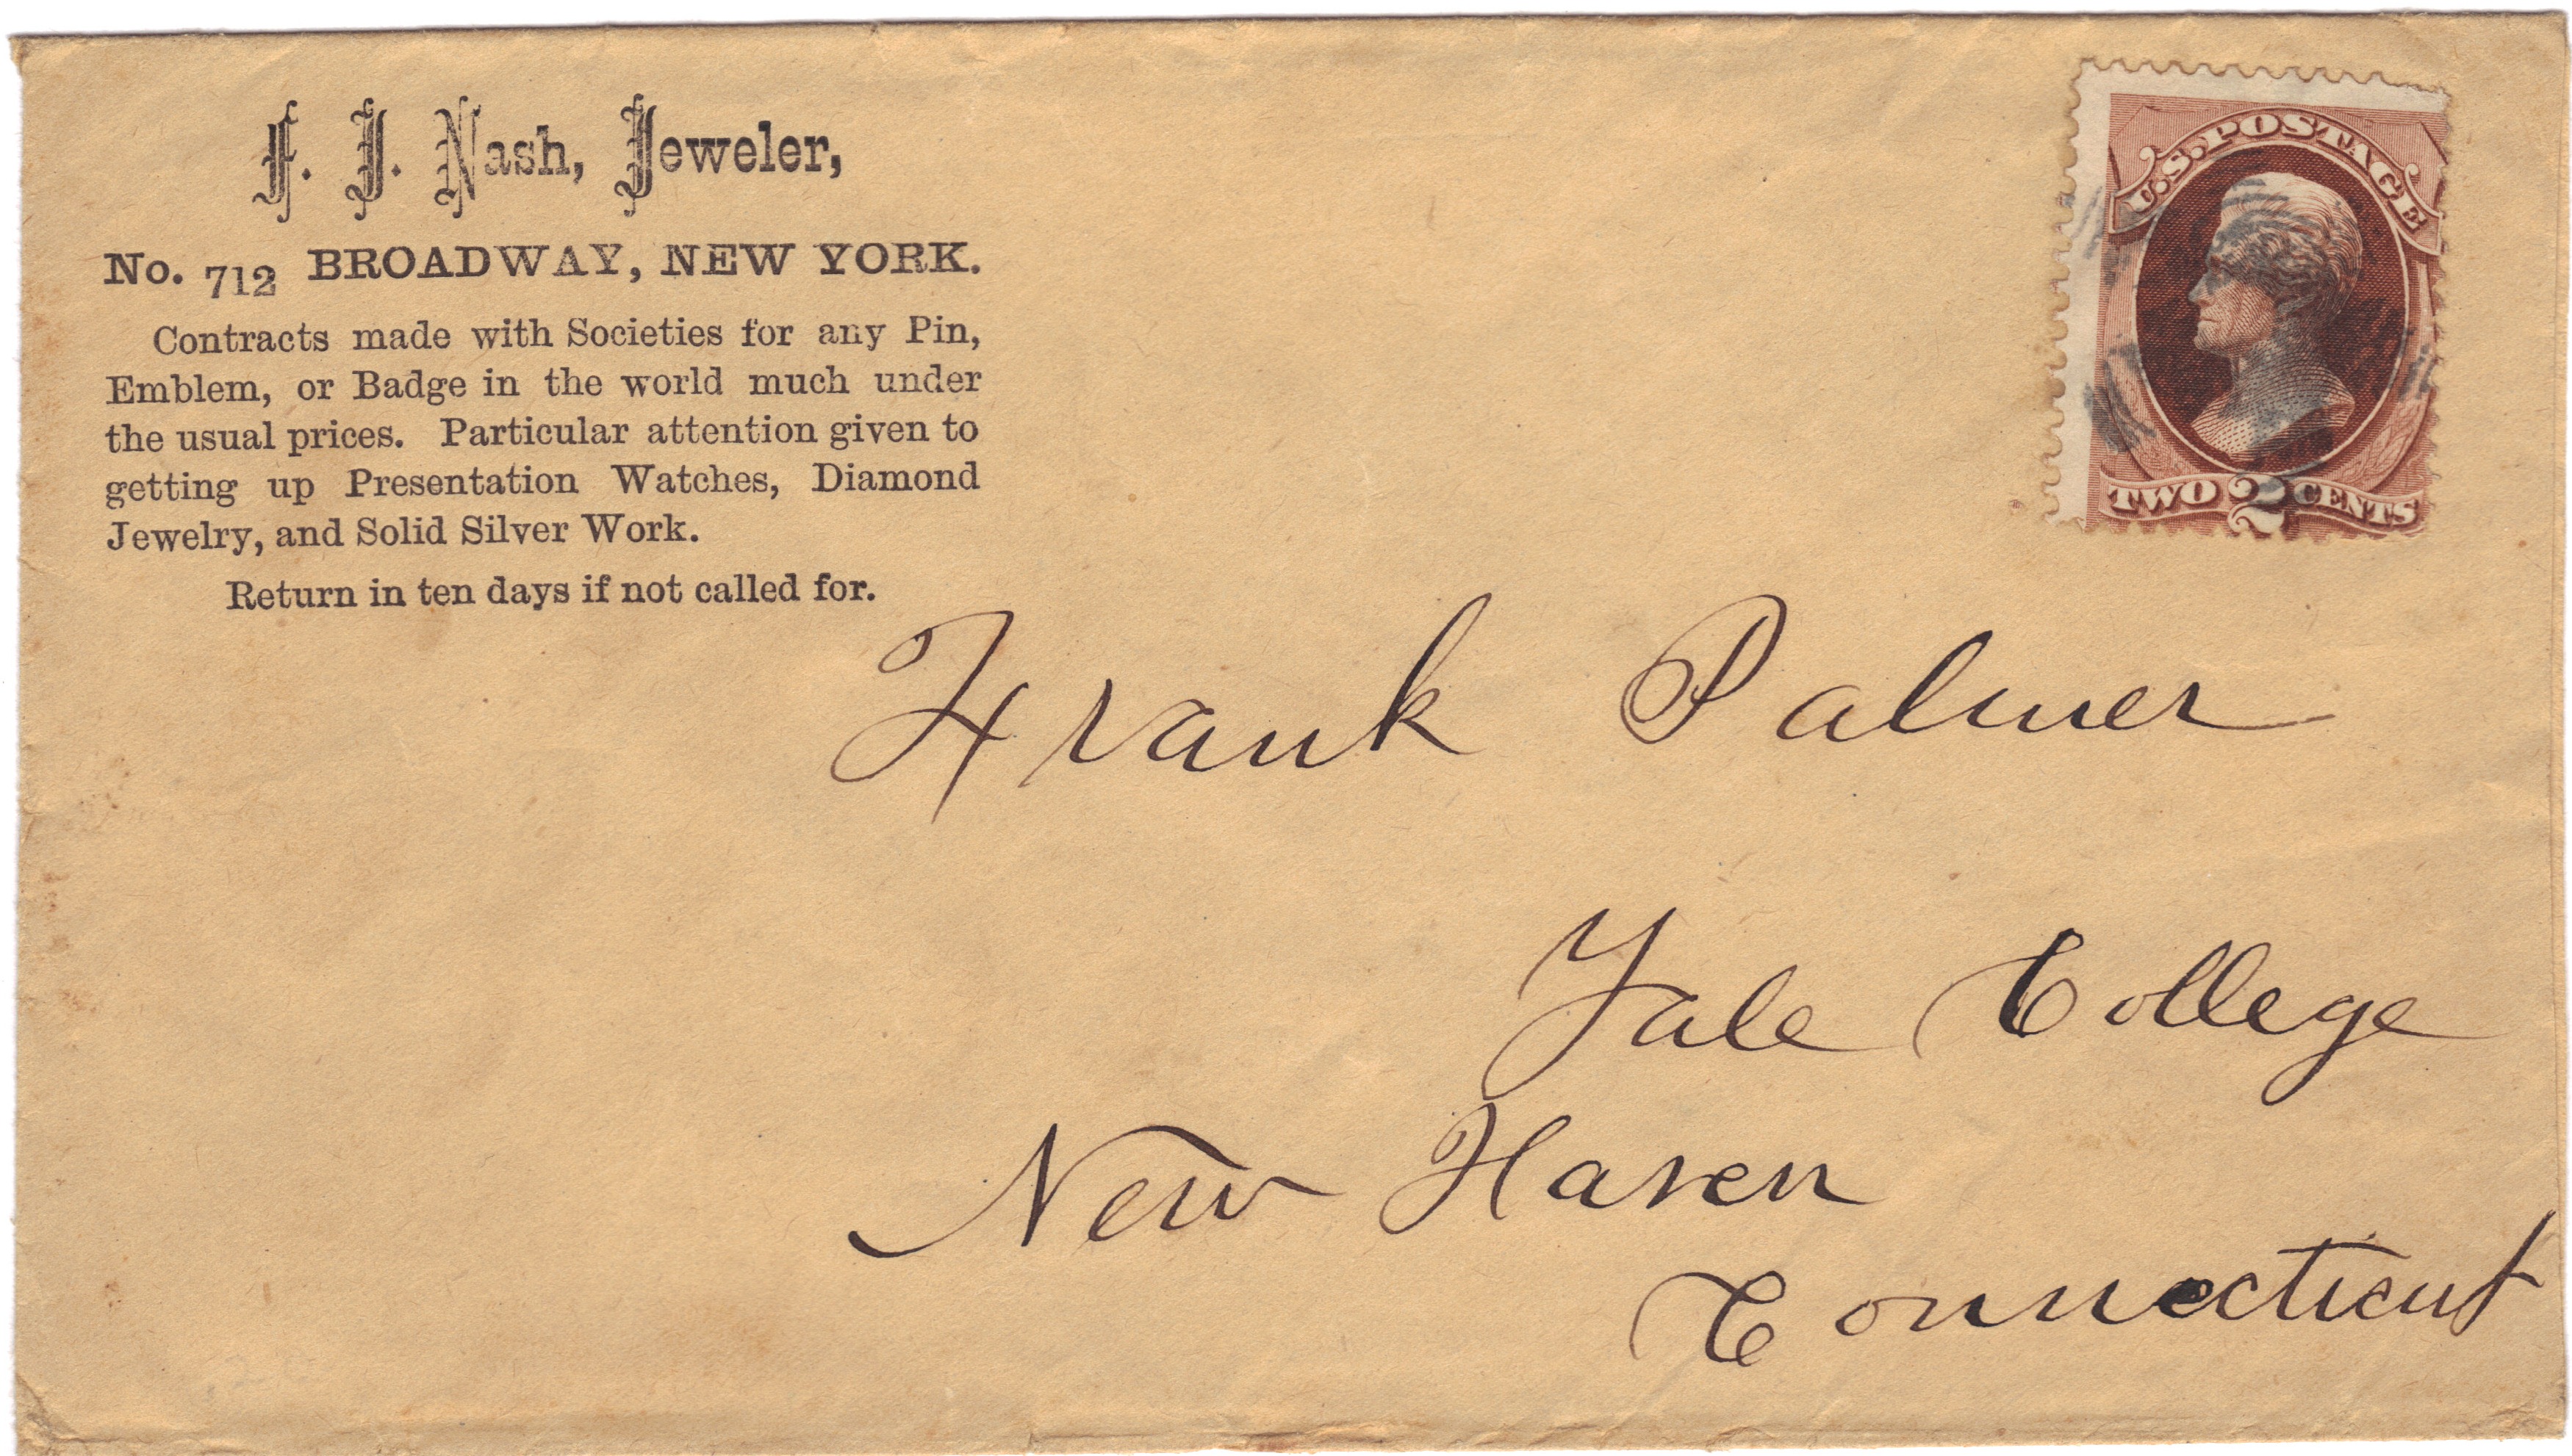 F. J. Nash, Jeweler,
No. 712 BROADWAY, NEW YORK.
Contracts made with Societies for any Pin,
Emblem, or Badge in the world much under
the usual prices. Particular attention given to
getting up Presentation Watches, Diamond
Jewelry, and Solid Silver Work.
Return in ten days if not called for.
U.S. POSTAGE
TWO 2 CENTS
Frank Palmer
Yale College
New Haven
Connecticut